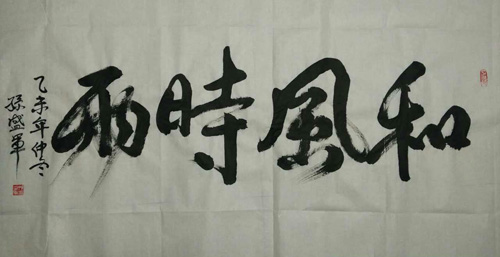 和風時雨
乙未年仲冬
孫盛軍